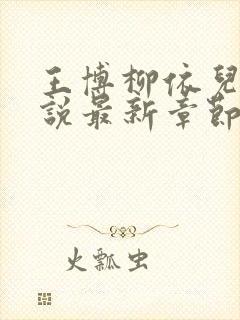 王博柳依兒
說最新章節
火瓢虫